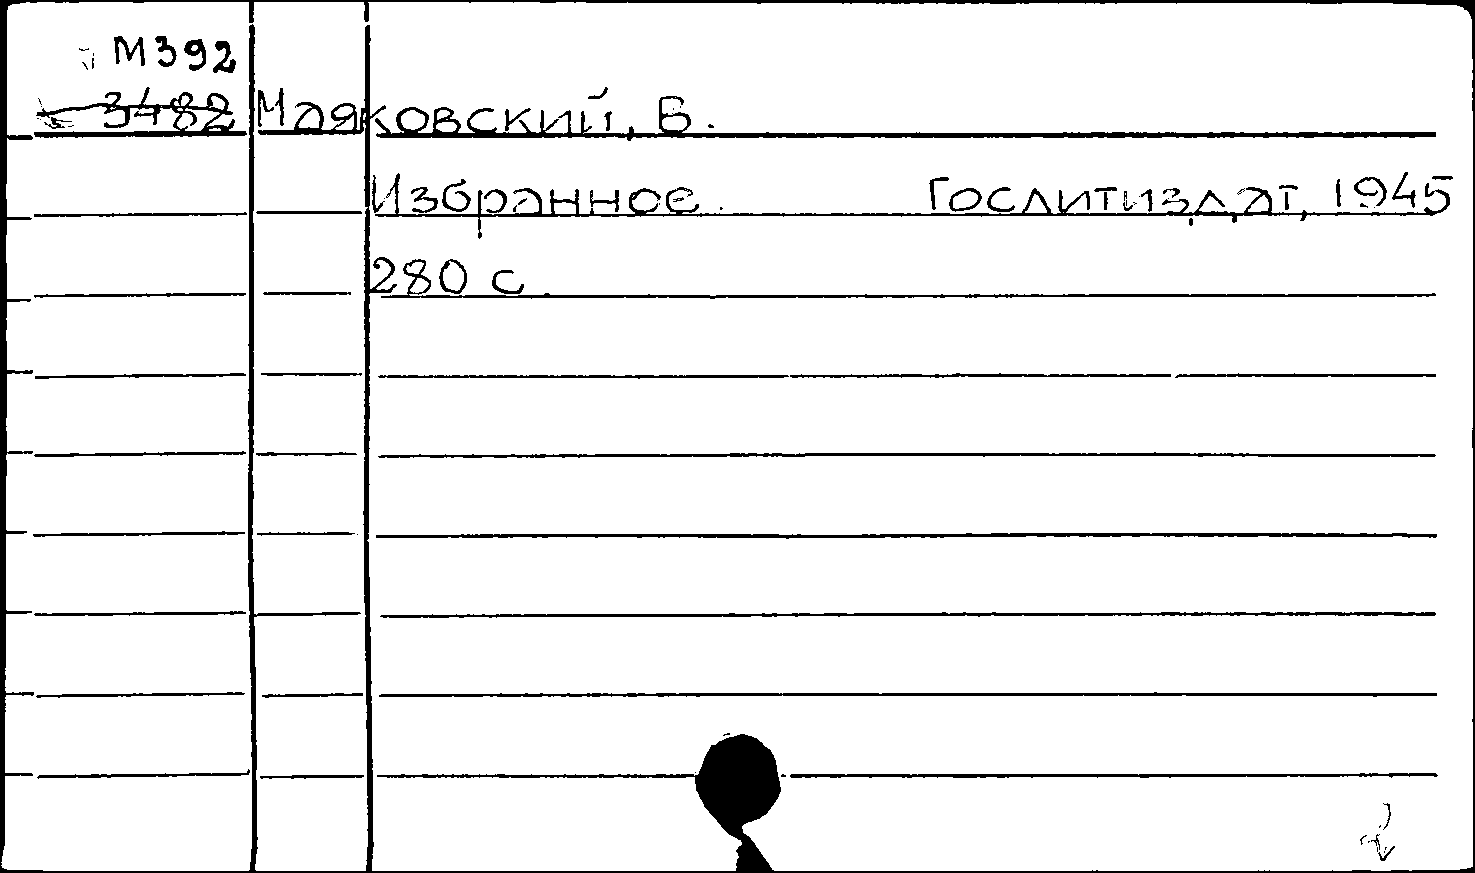 М392
3482 Маяковский, В.
Избранное. Гослитиздат, 1945
280 с.